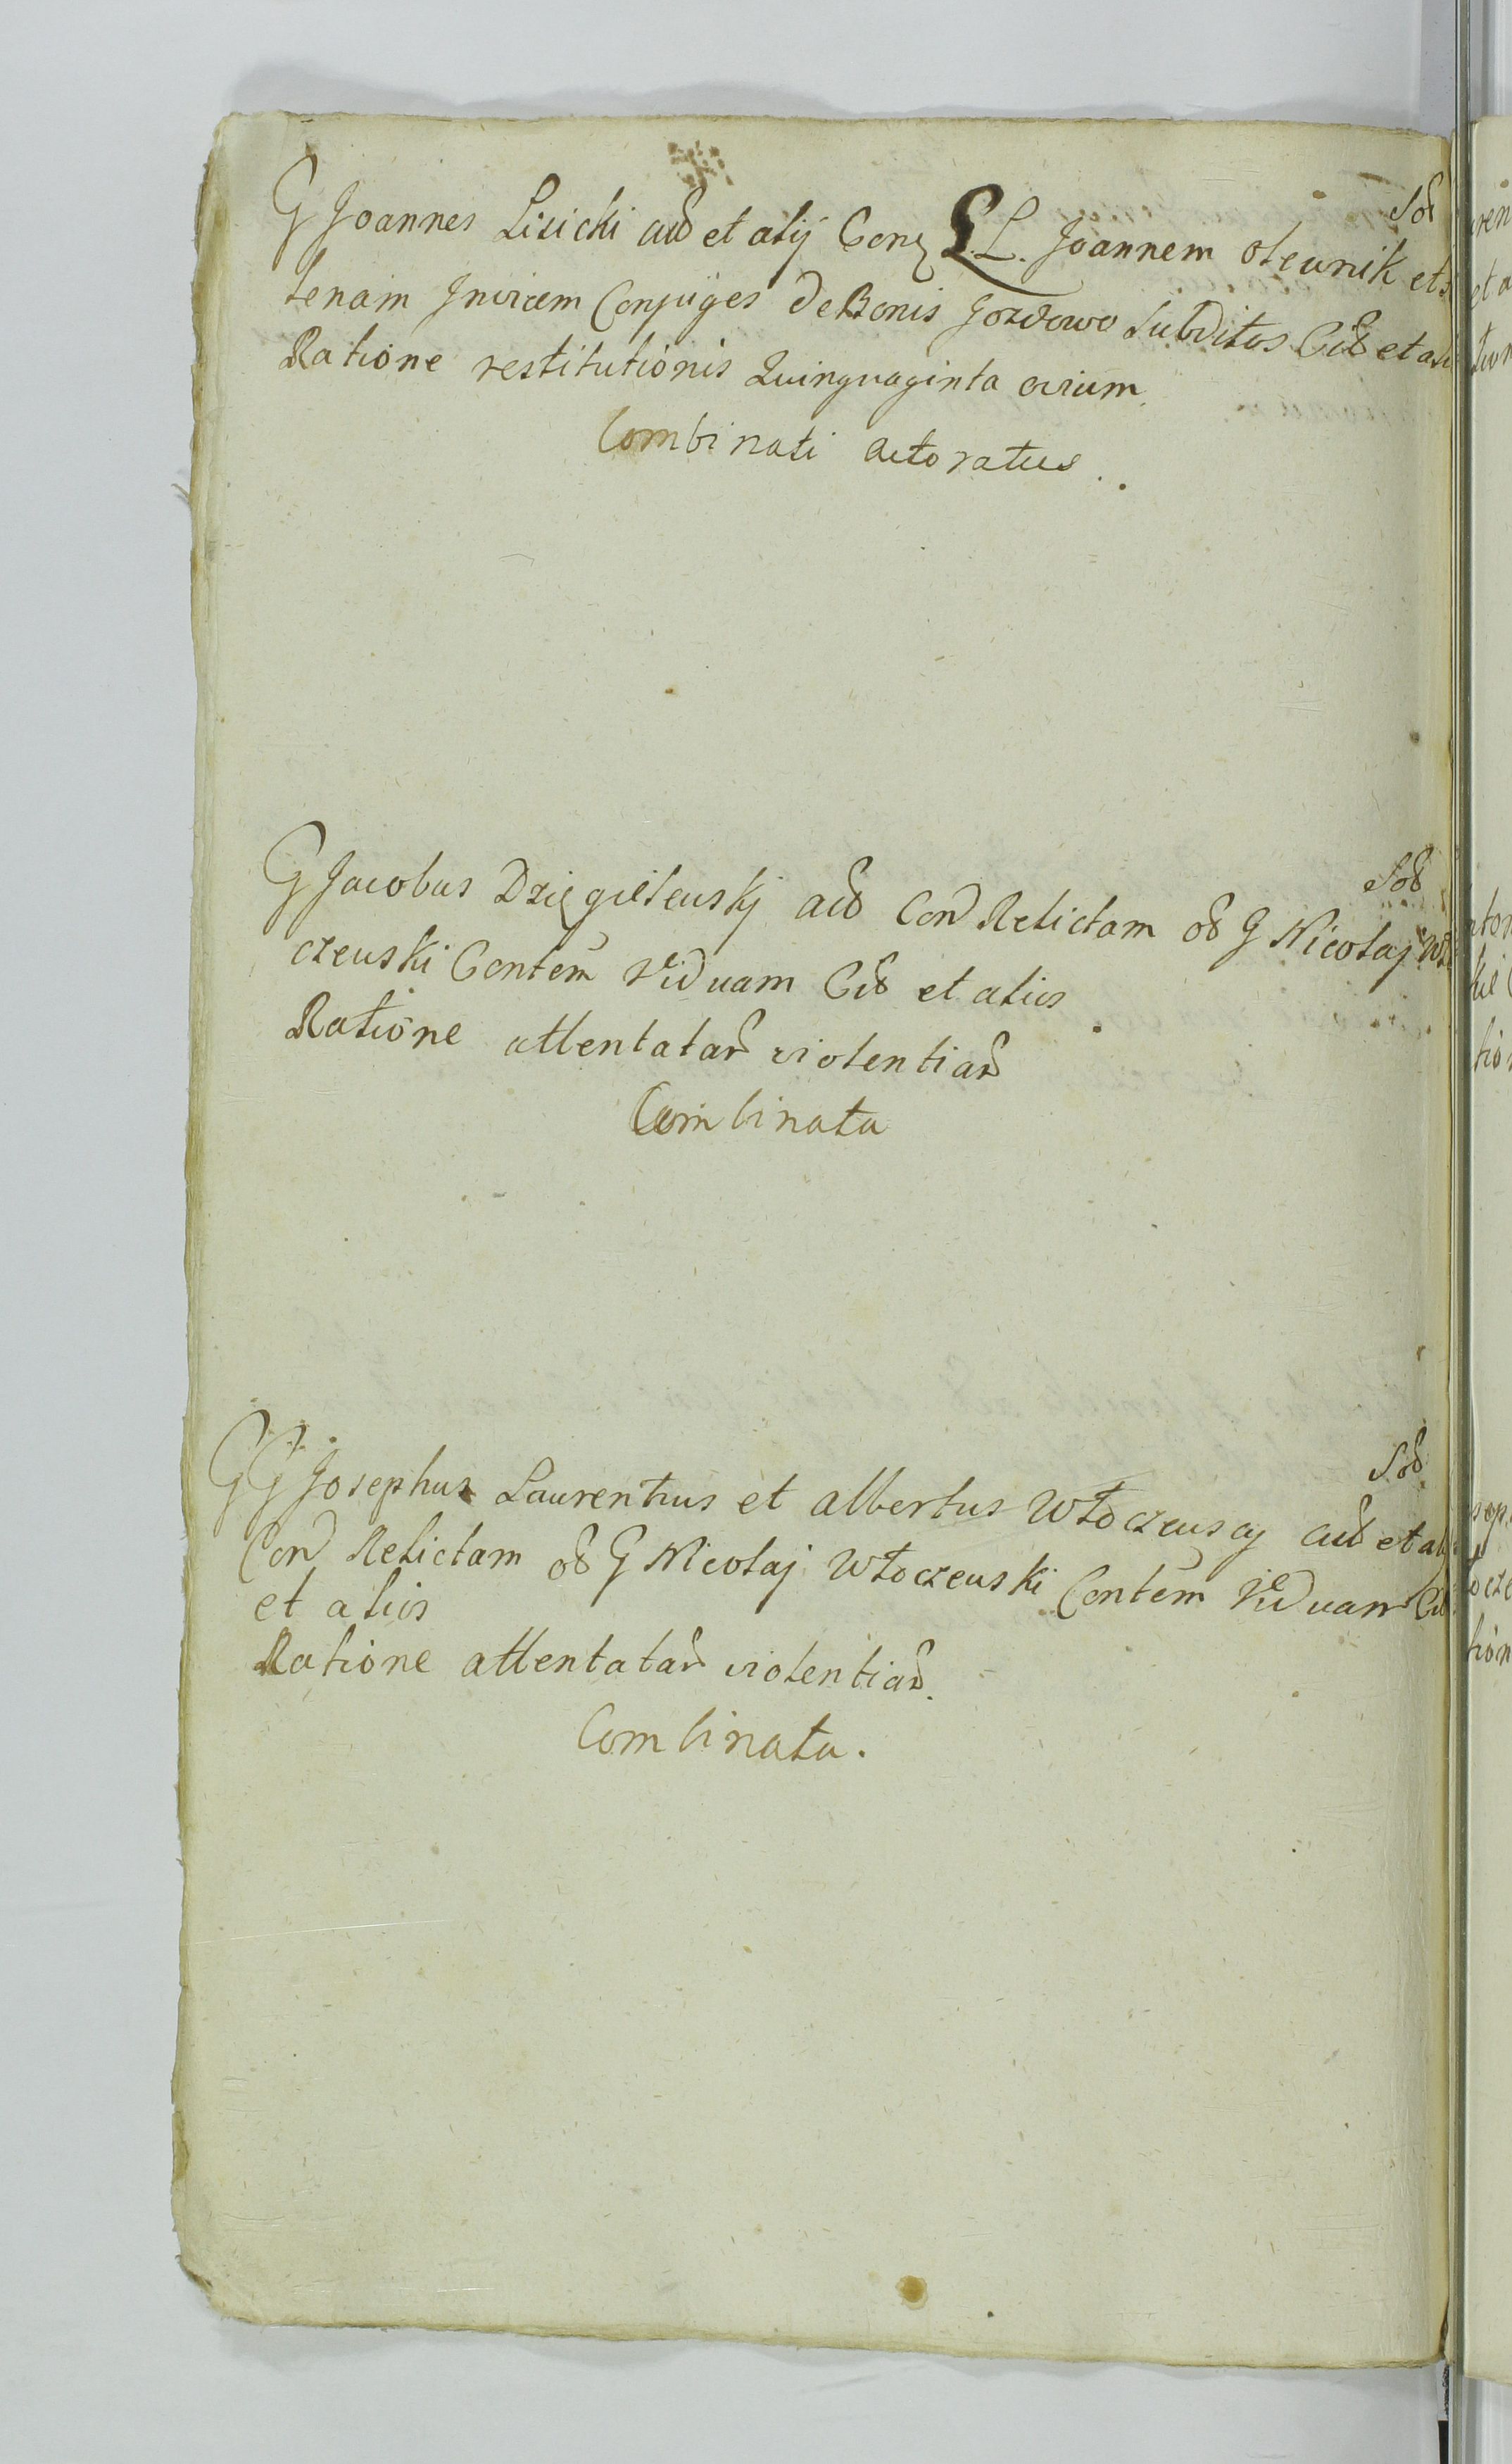 Sol
G Joannes Lisicki act et alij Conq LL. Joannem olewnik et
lenam Invicem Conjuges de Bonis Gozdowo Subditos Cit et ali
Ratione restitutionis Quinquaginta ovium.
Combinati actoratus..
Sol
G Jacobus Dzięgielewskj act Con Relictam ol G Nicolaj Wło
czewski Contem Viduam Cit et alios
Ratione attentatar violentiar
Combinata
Sol
GG Josephus Laurentius et albertus Włoczewscy act et alij
Con Relictam ol G Nicolaj Włoczewski Contem Viduam Cit
et alios
Ratione attentatar violentiar.
Combinata.